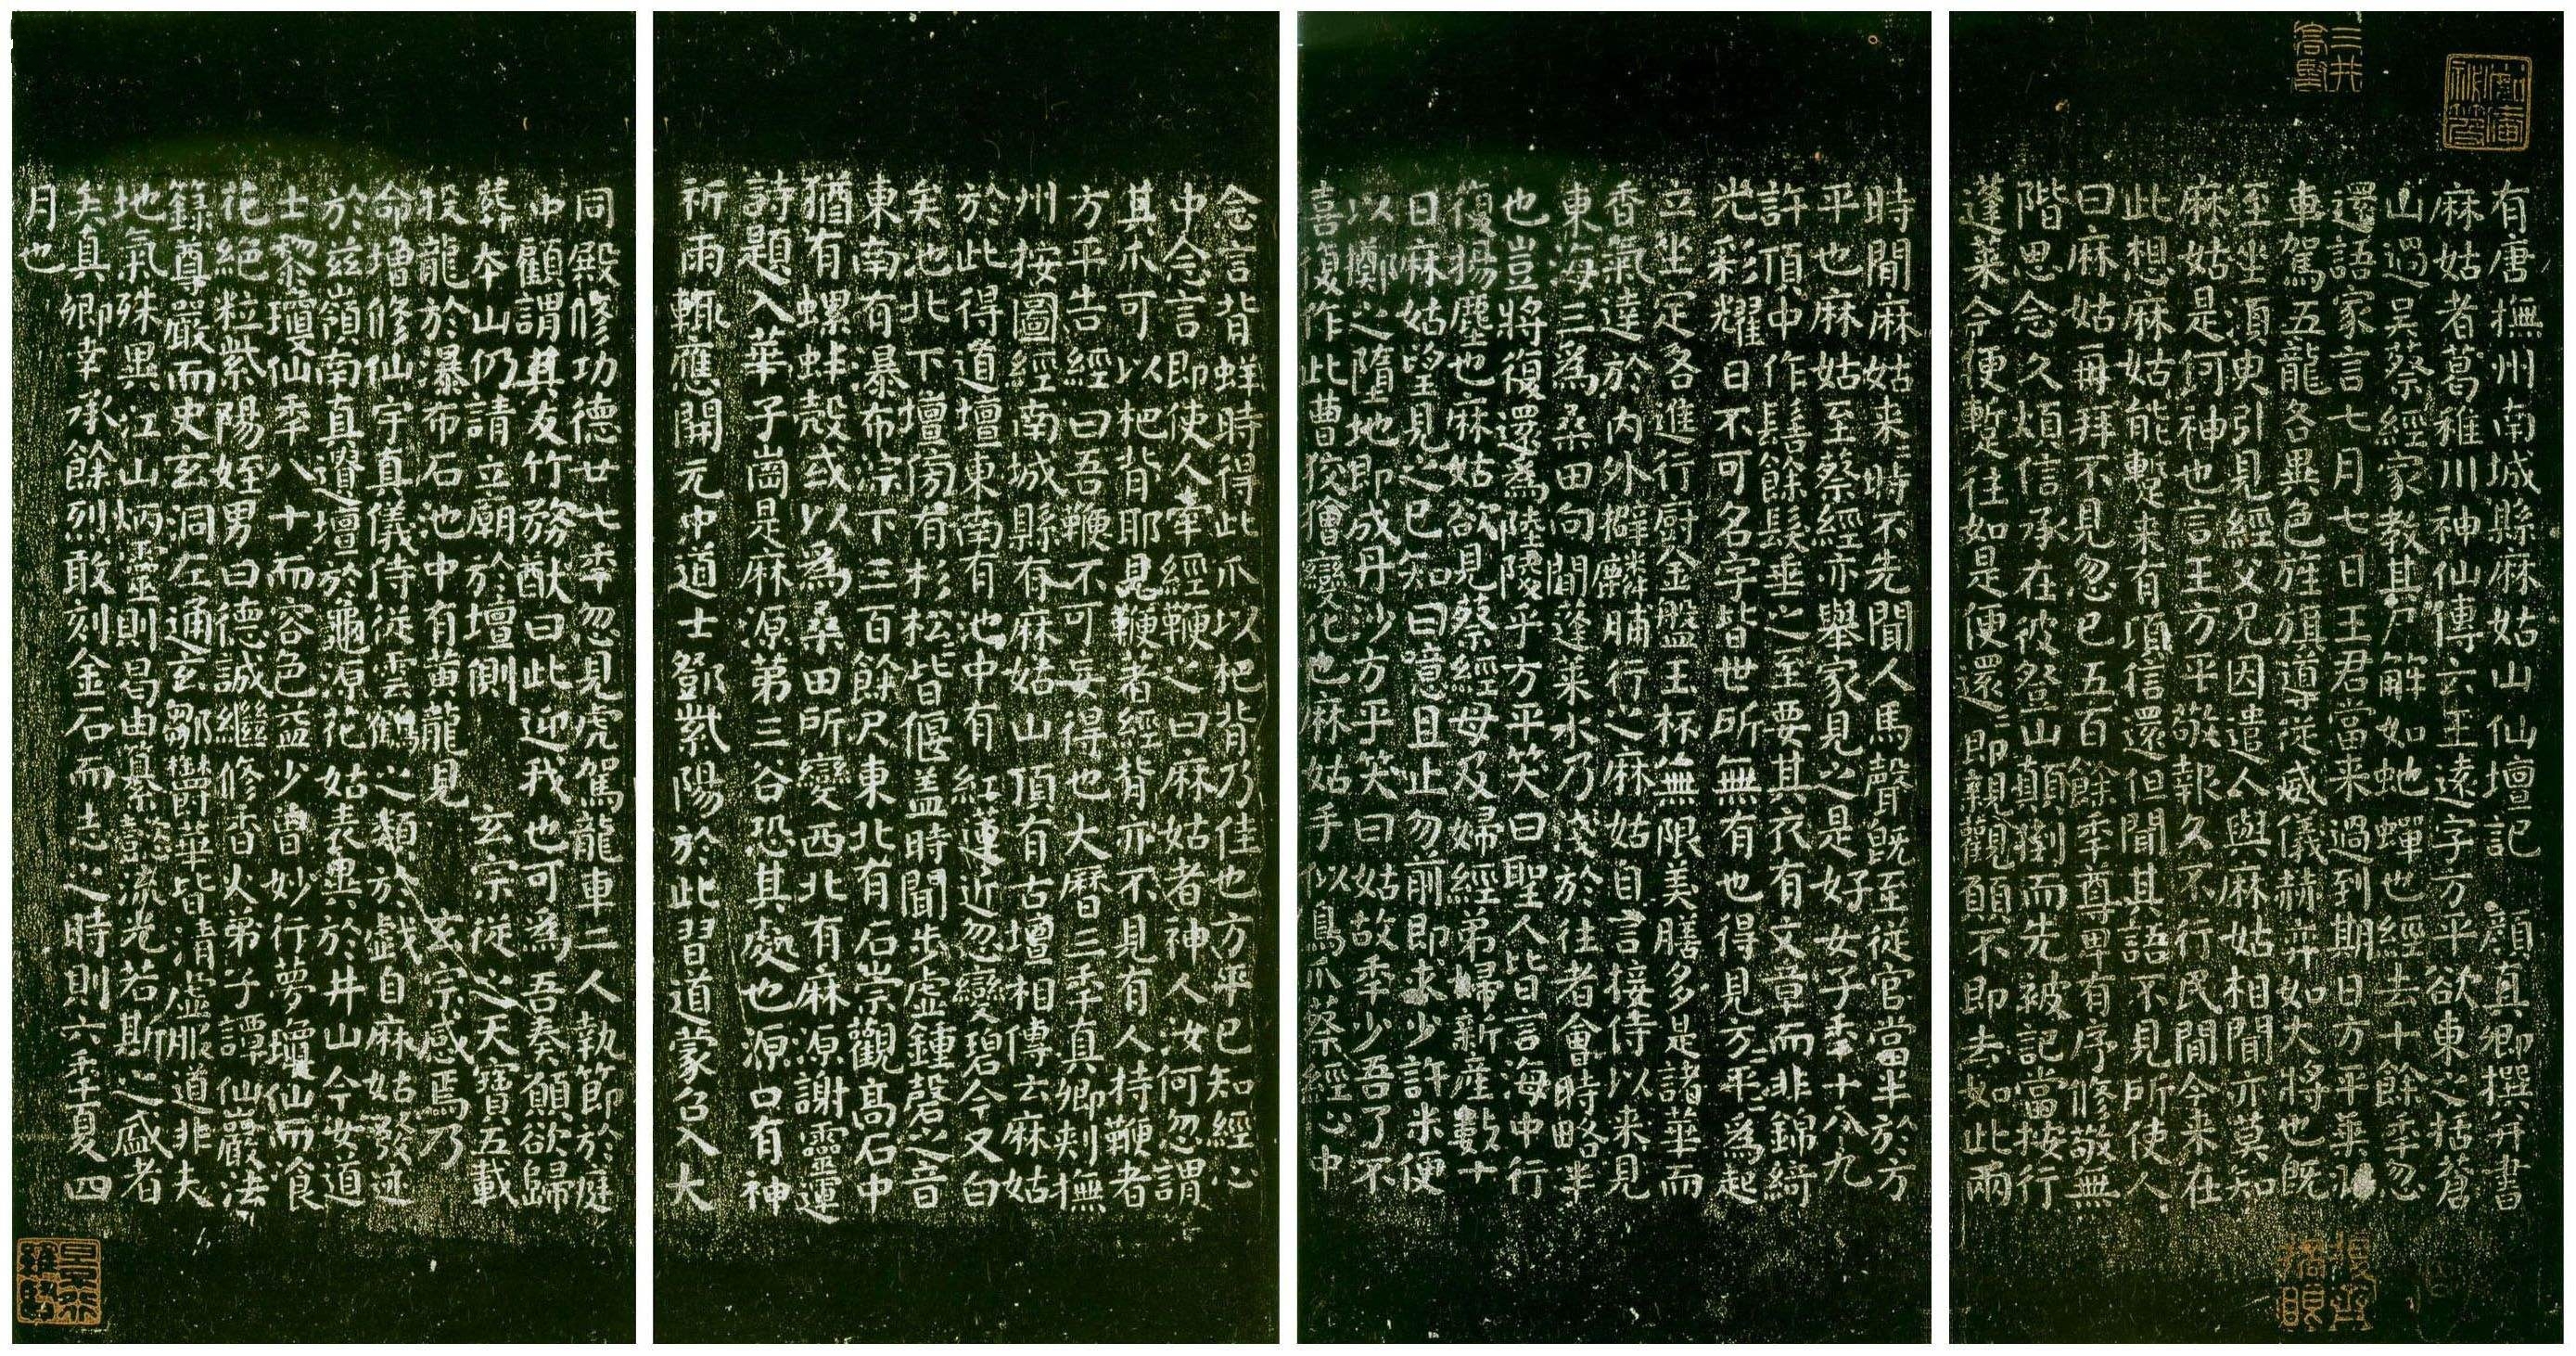 有唐撫州南城縣麻姑山仙壇記 顏真卿撰并書
麻姑者葛稚川神仙傳云王遠字方平欲東之括蒼
山過吳蔡經家教其尸解如虵蟬也經去十餘秊忽
還語家言七月七日王君當来過到期日方平乘羽
車駕五龍各異色旌旗導従威儀赫弈如大將也既
至坐須臾引見經父兄因遣人與麻姑相聞亦莫知
麻姑是何神也言王方平敬報久不行民間今来在
此想麻姑能蹔来有頃信還但聞其語不見所使人
曰麻姑再拜不見忽已五百餘秊尊卑有序修敬無
階思念久煩信承在彼登山顛倒而先被記當按行
蓬萊今便蹔往如是便還還即親觀願不即去如此兩
時間麻姑来来時不先聞人馬聲既至従官當半於方
平也麻姑至蔡經亦舉家見之是好女子秊十八九
許頂中作髻餘髮垂之至要其衣有文章而非錦綺
光彩耀日不可名字皆世所無有也得見方平方平為起
立坐定各進行廚金盤玉杯無限美膳多是諸華而
香氣達於內外擗麟脯行之麻姑自言接侍以来見
東海三為桑田向間蓬萊水乃淺於往者會時略半
也豈將復還為陸陵乎方平笑曰聖人皆言海中行
復揚塵也麻姑欲見蔡經母及婦經弟婦新產數十
日麻姑望見之已知曰噫且止勿前即求少許米便
以擲之墮地即成丹沙方平笑曰姑故秊少吾了不
喜復作此曹狡獪變化也麻姑手似鳥爪蔡經心中
念言背蛘時得此爪以杷背乃佳也方平已知經心
中念言即使人牽經鞭之曰麻姑者神人汝何忽謂
其爪可以杷背耶見鞭著經背亦不見有人持鞭者
方平告經曰吾鞭不可妄得也大曆三秊真卿刺撫
州按圖經南城縣有麻姑山頂有古壇相傳云麻姑
於此得道壇東南有池中有紅蓮近忽變碧今又白
矣池北下壇傍有杉松松皆偃蓋時聞步虛鍾磬之音
東南有瀑布淙下三百餘尺東北有石崇觀高石中
猶有螺蚌殼或以為桑田所變西北有麻源謝靈運
詩題入華子崗是麻源第三谷恐其處也源口有神
祈雨輒應開元中道士鄧紫陽於此習道蒙召入大
同殿修功德廿七秊忽見虎駕龍車二人執節於庭
中顧謂其友竹務猷曰此迎我也可為吾奏願欲歸
葬本山仍請立廟於壇側 玄宗従之天寶五載
投龍於瀑布石池中有黃龍見 玄宗感焉乃
命增修仙宇真儀侍従雲鶴之類於戲自麻姑發迹
於茲嶺南真遺壇於龜源花姑表異於井山今女道
士黎瓊仙秊八十而容色益少曾妙行夢瓊仙而飡
花絕粒紫陽姪男曰德誠繼修香火弟子譚仙巖法
籙尊嚴而史玄洞左通玄鄒鬱華皆清虛服道非夫
地氣殊異江山炳靈則曷由纂懿流光若斯之盛者
矣真卿幸承餘烈敢刻金石而志之時則六秊夏四
月也